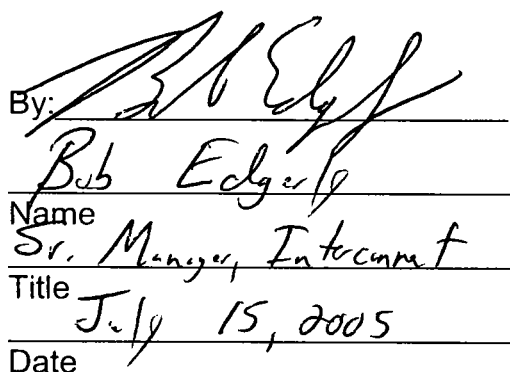 By: Bob Edgerly
Bob Edgerly
Name
Sr. Manager, Interconnect
Title
July 15, 2005
Date